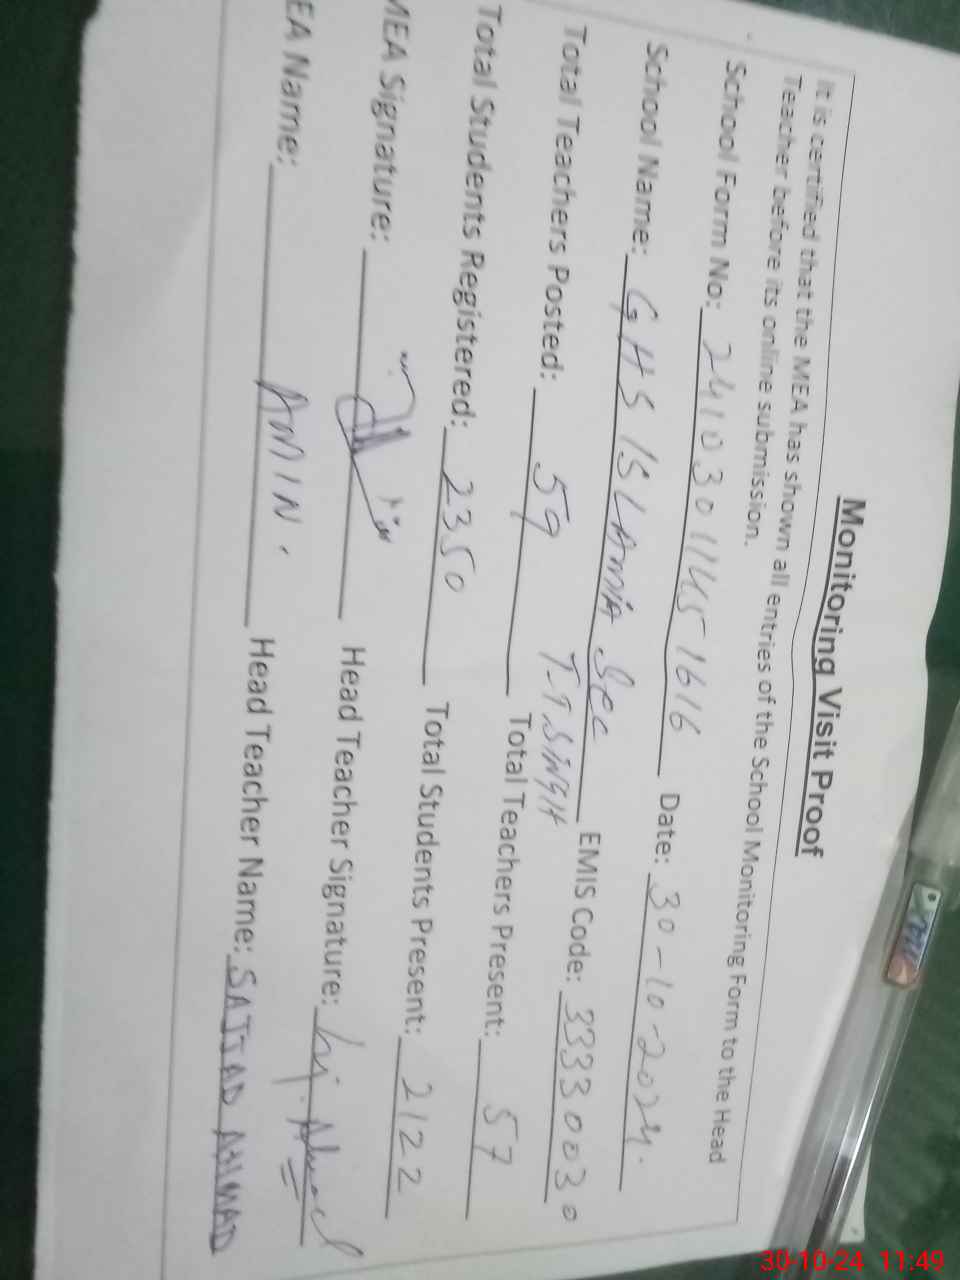 Monitoring Visit Proof
It is certified that the MEA has shown all entries of the School Monitoring Form to the Head
Teacher before its online submission.
School Form No: 24103011451616 Date: 30-10-2024.
School Name: GHS ISLAMIA Sec EMIS Code: 33330030
T.T.SINGH
Total Teachers Posted: 59 Total Teachers Present: 57
Total Students Registered: 2350 Total Students Present: 2122
MEA Signature: Head Teacher Signature:
EA Name: AMIN. Head Teacher Name: SAJJAD AHMAD
30-10-24 11:49